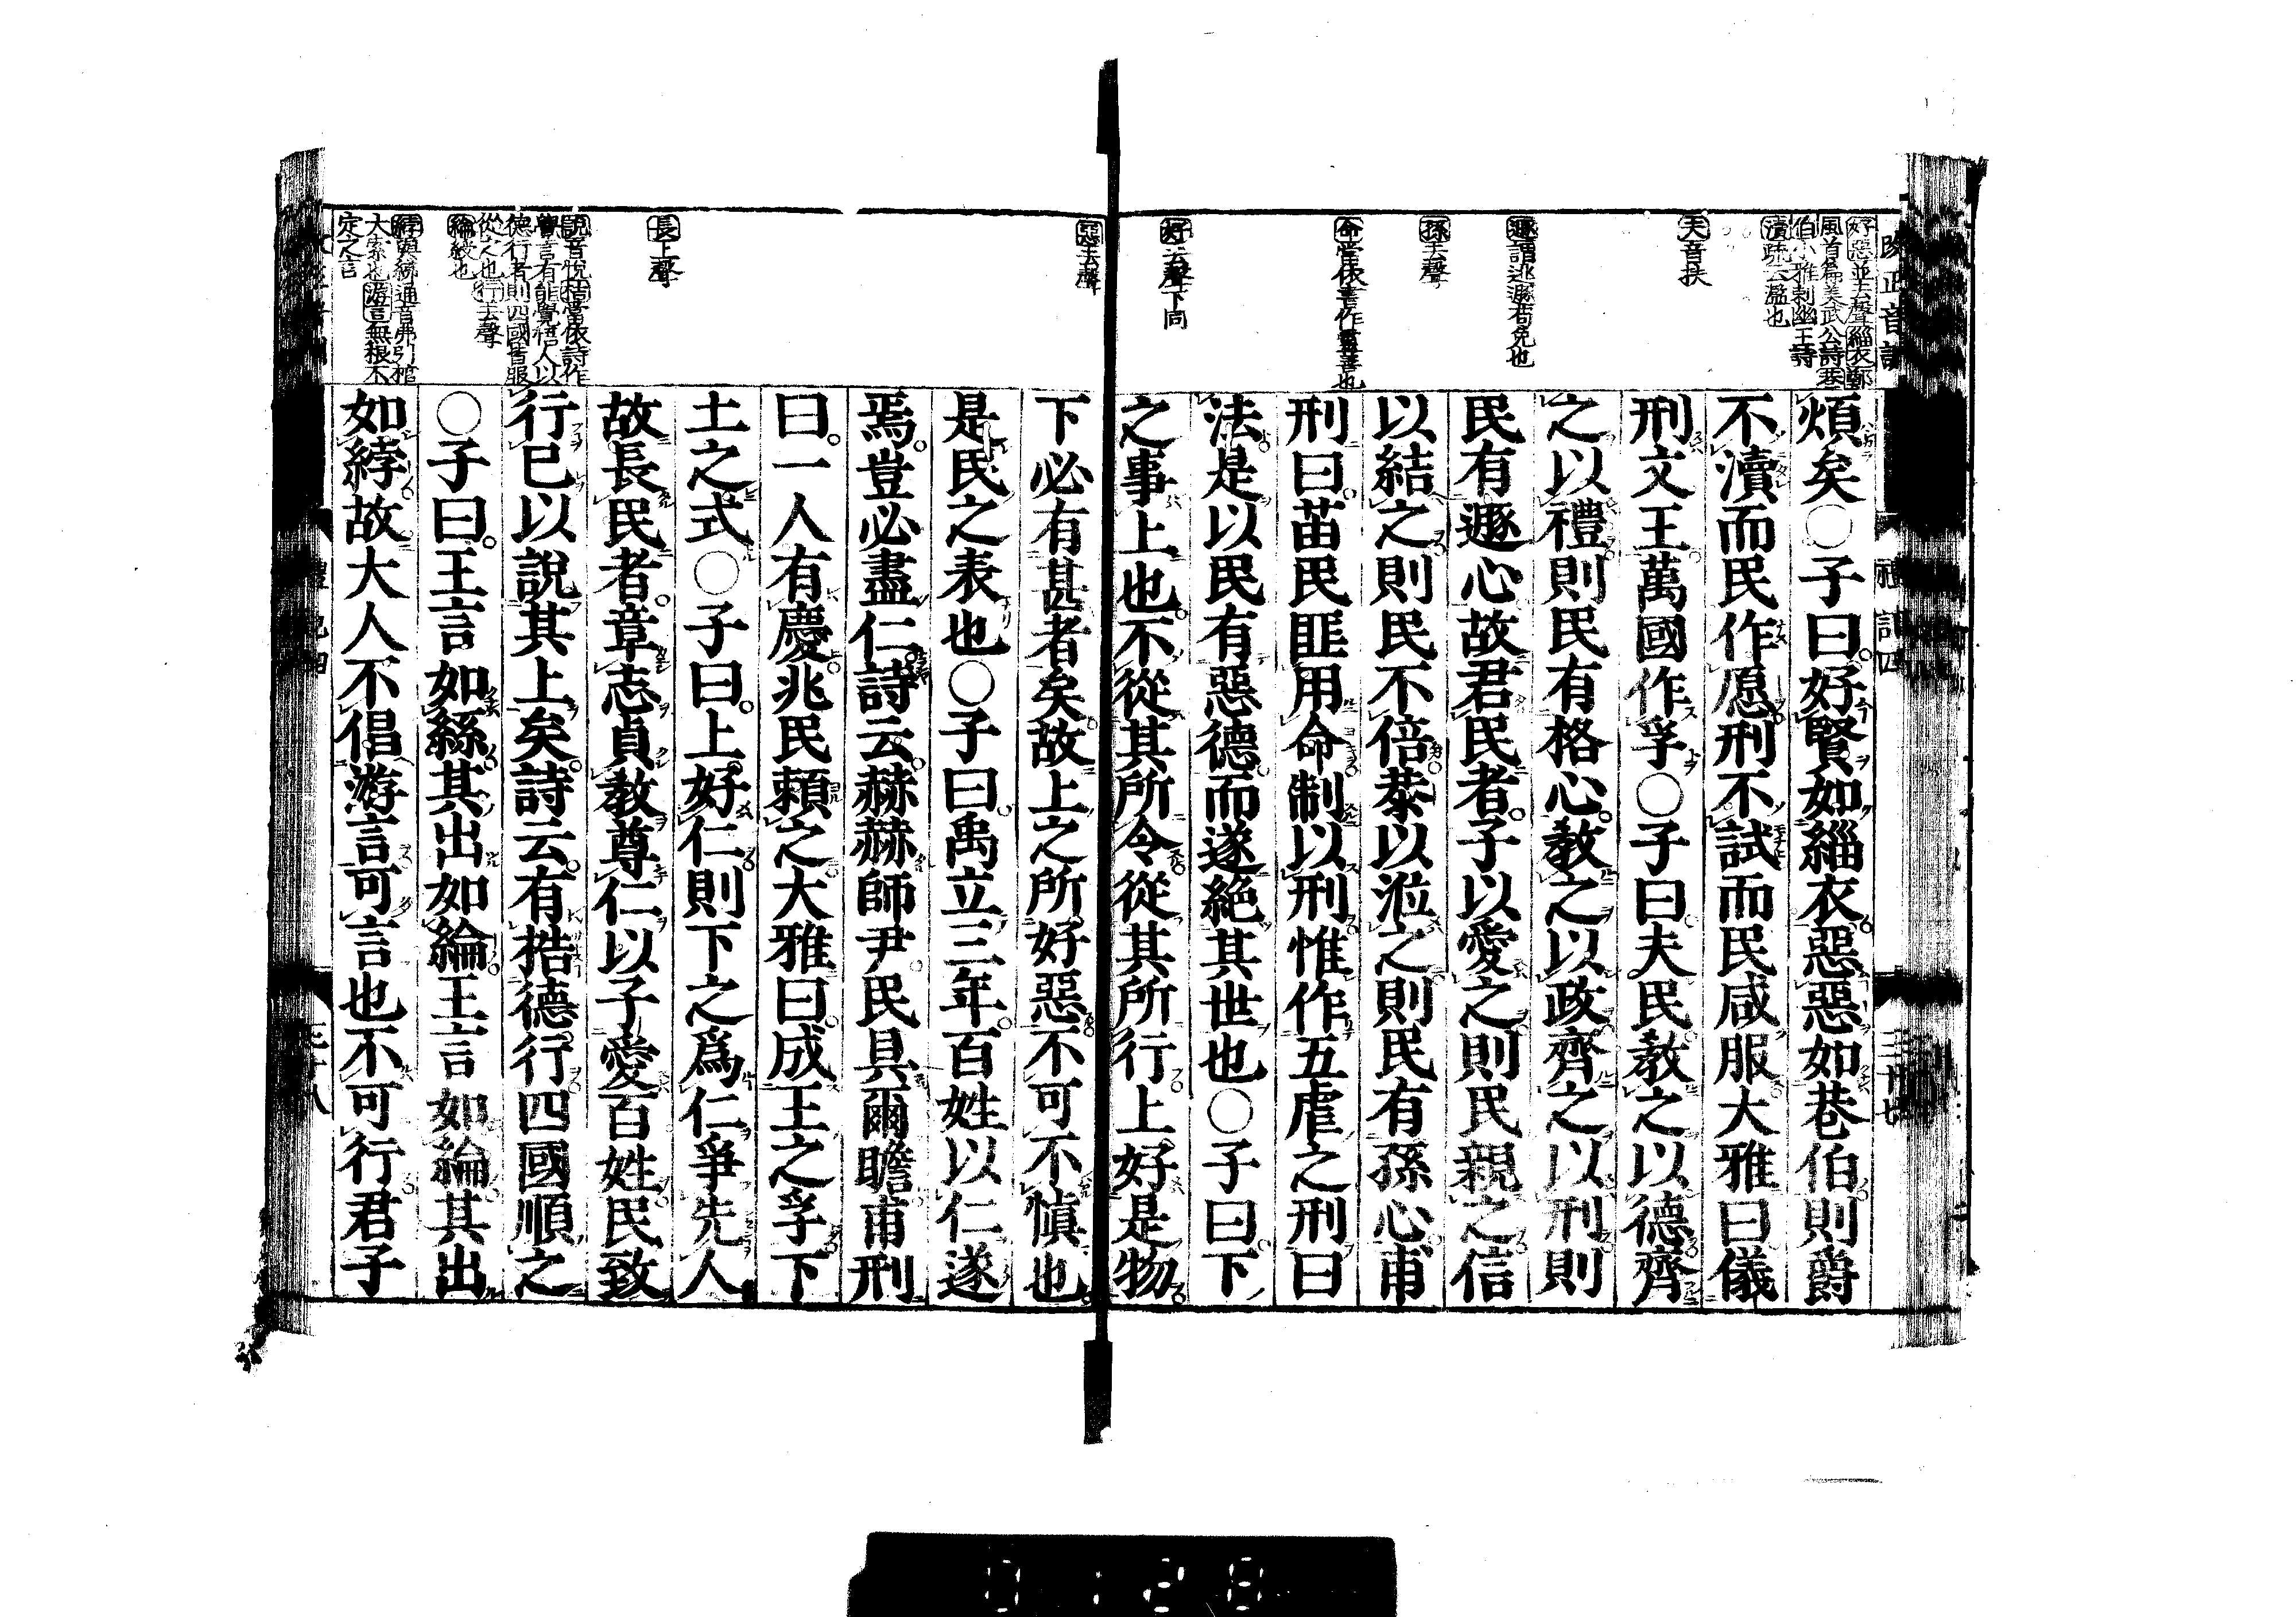 改正音訓
禮記四
三十七
好惡並去聲緇衣鄭
風首篇美武公詩巷
伯小雅刺幽王詩
瀆疏云濫也
夫音扶
遯謂逃遯苟免也
孫去聲
命當依書作靈善也
好去聲下同
煩矣○子曰好賢如緇衣惡惡如巷伯則爵
不瀆而民作愿刑不試而民咸服大雅曰儀
刑文王萬國作孚○子曰夫民教之以德齊
之以禮則民有格心教之以政齊之以刑則
民有遯心故君民者子以愛之則民親之信
以結之則民不倍恭以涖之則民有孫心甫
刑曰苗民匪用命制以刑惟作五虐之刑曰
法是以民有惡德而遂絕其世也○子曰下
之事上也不從其所令從其所行上好是物
惡去聲
長上聲
說音悅梏當依詩作
覺言有能覺悟人以
德行者則四國皆服
從之也行去聲
綸綬也
綍與紼通音弗引棺
大索也游言無根不
定之言
下必有甚者矣故上之所好惡不可不慎也
是民之表也○子曰禹立三年百姓以仁遂
焉豈必盡仁詩云赫赫師尹民具爾瞻甫刑
曰一人有慶兆民賴之大雅曰成王之孚下
土之式○子曰上好仁則下之爲仁爭先人
故長民者章志貞教尊仁以子愛百姓民致
行已以說其上矣詩云有梏德行四國順之
○子曰王言如絲其出如綸王言如綸其出
如綍故大人不倡游言可言也不可行君子
三十八
0128